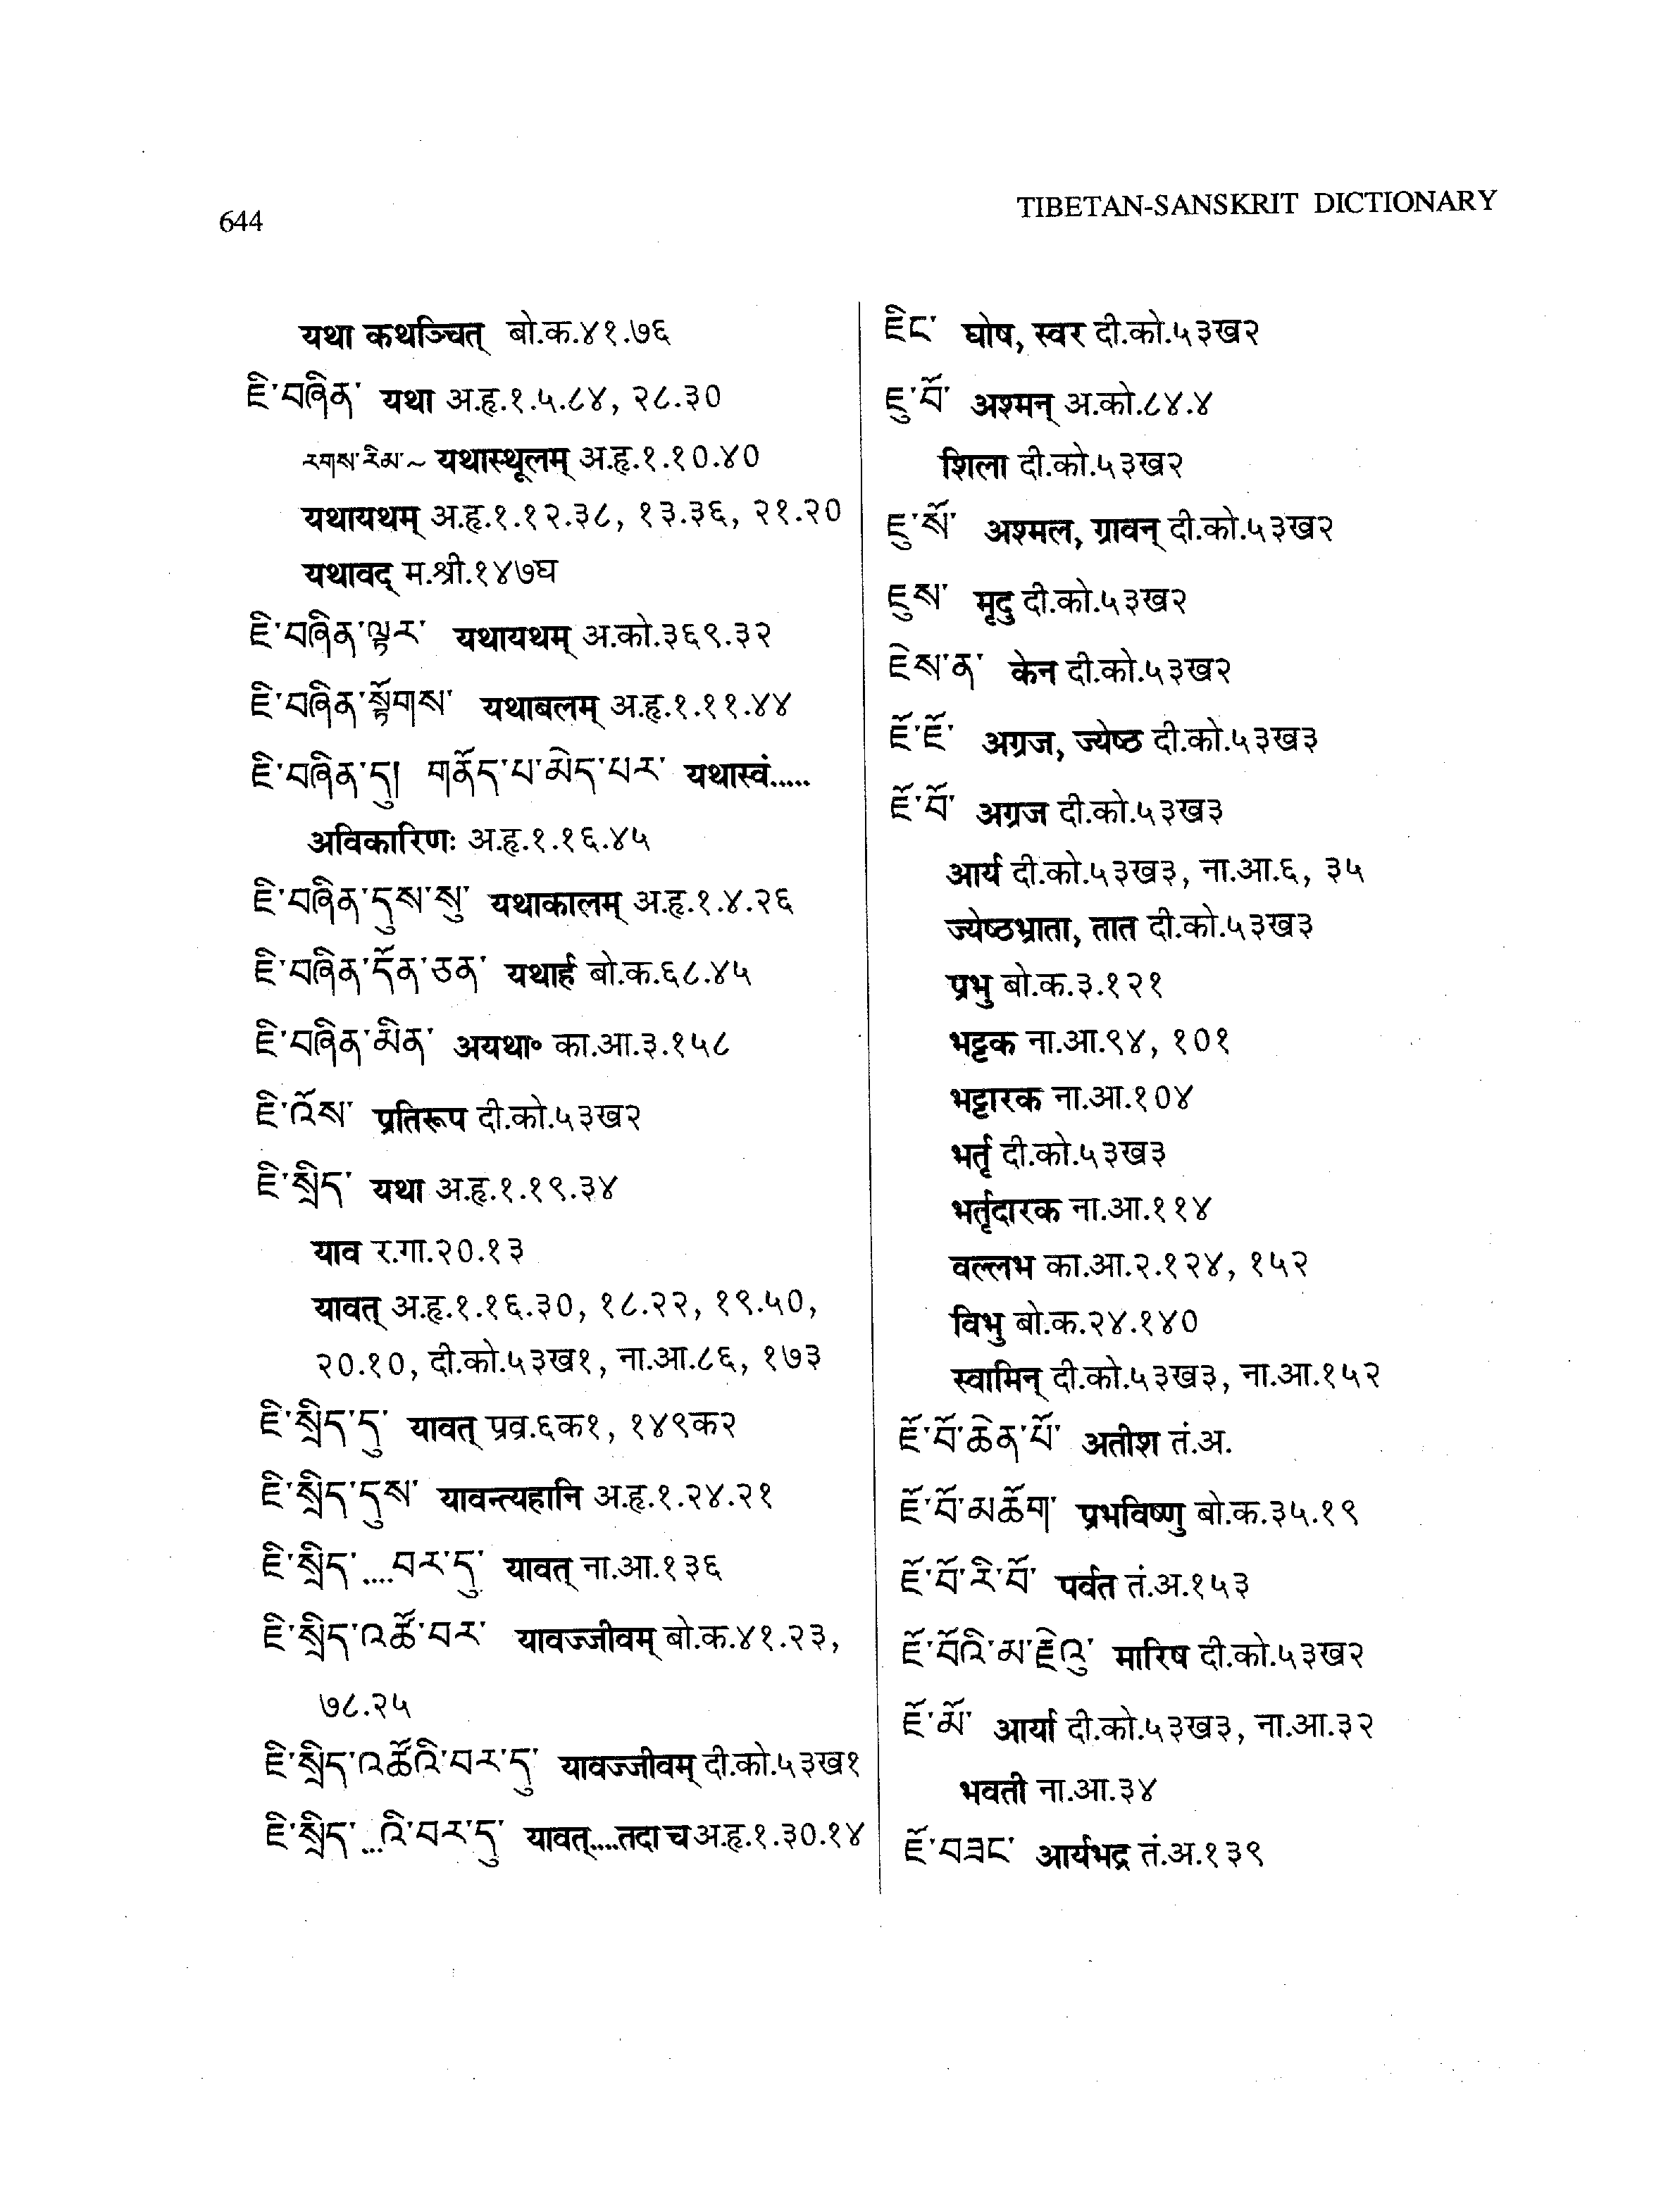 644
TIBETAN-SANSKRIT DICTIONARY
यथा कथञ्चित् बो.क.४१.७६
ཇི་བཞིན་ यथा अ.हृ.१.५.८४, २८.३०
རགས་རིམ་~ यथास्थूलम् अ.हृ.१.१०.४०
यथायथम् अ.हृ.१.१२.३८, १३.३६, २१.२०
यथावद् म.श्री.१४७घ
ཇི་བཞིན་ལྟར་ यथायथम् अ.को.३६९.३२
ཇི་བཞིན་སྟོགས་ यथाबलम् अ.हृ.१.११.४४
ཇི་བཞིན་དུ། གནོད་པ་མེད་པར་ यथास्वं.....
अविकारिणः अ.हृ.१.१६.४५
ཇི་བཞིན་དུས་སུ་ यथाकालम् अ.हृ.१.४.२६
ཇི་བཞིན་དོན་ཅན་ यथार्ह बो.क.६८.४५
ཇི་བཞིན་མིན་ अयथा॰ का.आ.३.१५८
ཇི་འོས་ प्रतिरूप दी.को.५३ख२
ཇི་སྲིད་ यथा अ.हृ.१.१९.३४
याव र.गा.२०.१३
यावत् अ.हृ.१.१६.३०, १८.२२, १९.५०,
२०.१०, दी.को.५३ख१, ना.आ.८६, १७३
ཇི་སྲིད་དུ་ यावत् प्रव्र.६क१, १४९क२
ཇི་སྲིད་དུས་ यावन्त्यहानि अ.हृ.१.२४.२१
ཇི་སྲིད་....བར་དུ་ यावत् ना.आ.१३६
ཇི་སྲིད་འཚོ་བར་ यावज्जीवम् बो.क.४१.२३,
७८.२५
ཇི་སྲིད་འཚོའི་བར་དུ་ यावज्जीवम् दी.को.५३ख१
ཇི་སྲིད་...འི་བར་དུ་ यावत्....तदा च अ.हृ.१.३०.१४
ཇིང་ घोष, स्वर दी.को.५३ख२
ཇུ་བོ་ अश्मन् अ.को.८४.४
शिला दी.को.५३ख२
ཇུ་སོ་ अश्मल, ग्रावन् दी.को.५३ख२
ཇུས་ मृदु दी.को.५३ख२
ཇེས་ན་ केन दी.को.५३ख२
ཇོ་ཇོ་ अग्रज, ज्येष्ठ दी.को.५३ख३
ཇོ་བོ་ अग्रज दी.को.५३ख३
आर्य दी.को.५३ख३, ना.आ.६, ३५
ज्येष्ठभ्राता, तात दी.को.५३ख३
प्रभु बो.क.३.१२१
भट्टक ना.आ.९४, १०१
भट्टारक ना.आ.१०४
भर्तृ दी.को.५३ख३
भर्तृदारक ना.आ.११४
वल्लभ का.आ.२.१२४, १५२
विभु बो.क.२४.१४०
स्वामिन् दी.को.५३ख३, ना.आ.१५२
ཇོ་བོ་ཆེན་པོ་ अतीश तं.अ.
ཇོ་བོ་མཆོག་ प्रभविष्णु बो.क.३५.१९
ཇོ་བོ་རི་བོ་ पर्वत तं.अ.१५३
ཇོ་བོའི་མ་རྗེའུ་ मारिष दी.को.५३ख२
ཇོ་མོ་ आर्या दी.को.५३ख३, ना.आ.३२
भवती ना.आ.३४
ཇོ་བཟང་ आर्यभद्र तं.अ.१३९